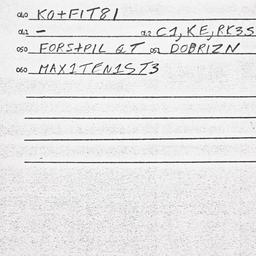 010 KO+FIT81
011 – 012 C1, KE, RK3.S
050 FORS+PIL GT 052 DOBRIZN
060 MAX1TEN1ST3